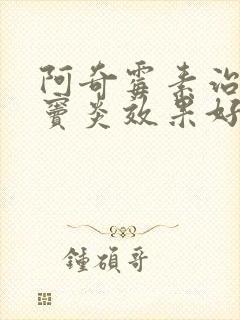 阿奇霉素治
窦炎效果好
鍾碩哥